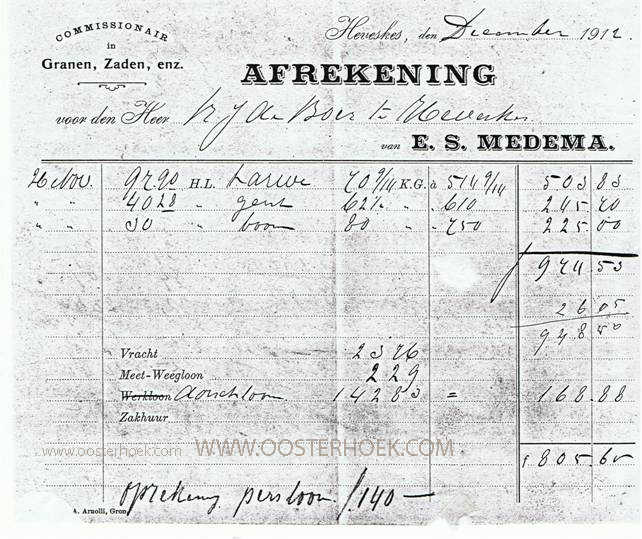 COMMISSIONAIR
in
Granen, Zaden, enz.
Heveskes, den December 1912.
AFREKENING
voor den Heer de Boer te Heveskes
van E. S. MEDEMA.
26 Nov. H.L. tarwe 70 K.G. à 503 83
" " 4028 " gerst 62½ " " 610 245 70
" " 30 " boon 80 " " 750 225 00
974 53
26 05
948 50
Vracht 2376
Meet-Weegloon 229
Werkloon Dorschloon 14283 = 168.88
Zakhuur
www.oosterhoek.com WWW.OOSTERHOEK.COM
805.65
persloon ƒ140—
A. Arnolli, Gron.